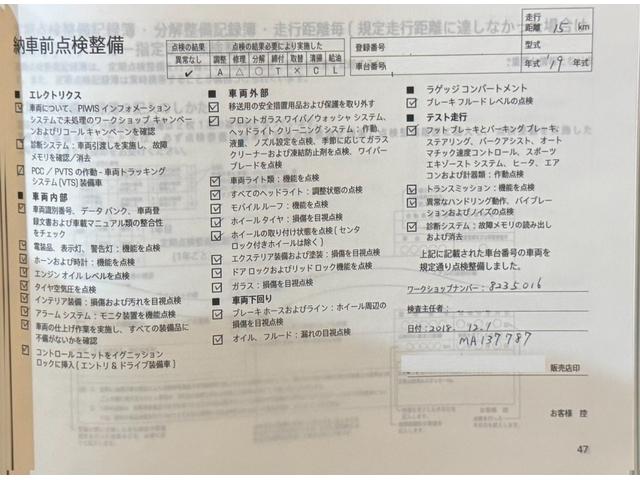 納車前点検整備
点検の結果
異常なし
✓
点検の結果必要により実施した
調整 修理 分解 締付 取替 清掃 給油
A △ ○ T × C L
登録番号
車台番号
走行距離 15 km
型式
年式 '19 年式
■ エレクトリクス
☑ 車両について、PIWIS インフォメーション
システムで未処理のワークショップ キャンペー
ンおよびリコール キャンペーンを確認
診断システム：車両引渡しを実施し、故障
メモリを確認/消去
PCC / PVTS の作動 - 車両トラッキング
システム (VTS) 装備車
■ 車両内部
☑ 車両識別番号、データ バンク、車両登
録文書および車載マニュアル類の整合性
をチェック
☑ 電装品、表示灯、警告灯：機能を点検
☑ ホーンおよび時計：機能を点検
☑ エンジン オイル レベルを点検
☑ タイヤ空気圧を点検
☑ インテリア装備：損傷および汚れを目視点検
☑ アラーム システム：モニタ装置を機能点検
☑ 車両の仕上げ作業を実施し、すべての装備品に
不備がないかを確認
☑ コントロール ユニットをイグニッション
ロックに挿入 (エントリ & ドライブ装備車)
■ 車両外部
☑ 移送用の安全措置用品および保護を取り外す
☑ フロントガラス ワイパ/ウォッシャ システム、
ヘッドライト クリーニング システム：作動、
液量、ノズル設定を点検、季節に応じてガラス
クリーナーおよび凍結防止剤を点検、ワイパー
ブレードを点検
☑ 車両ライト類：機能を点検
☑ すべてのヘッドライト：調整状態の点検
☑ モバイル ルーフ：機能を点検
☑ ホイール タイヤ：損傷を目視点検
☑ ホイールの取り付け状態を点検 (センタ
ロック付きホイールは除く)
☑ エクステリア装備および塗装：損傷を目視点検
☑ ドア ロックおよびリッド ロック機能を点検
☑ ガラス：損傷を目視点検
■ 車両下回り
☑ ブレーキ ホースおよびライン：ホイール周辺の
損傷を目視点検
☑ オイル、フルード：漏れの目視点検
■ ラゲッジ コンパートメント
☑ ブレーキ フルード レベルの点検
■ テスト走行
☑ フット ブレーキとパーキング ブレーキ、
ステアリング、パークアシスト、オート
マチック速度コントロール、スポーツ
エキゾースト システム、ヒータ、エア
コンおよび計器類：作動点検
☑ トランスミッション：機能を点検
☑ 異常なハンドリング動作、バイブレー
ションおよびノイズの点検
☑ 診断システム：故障メモリの読み出し
および消去
上記に記載された車台番号の車両を
規定通り点検整備しました。
ワークショップナンバー：8235016
検査主任者：
日付：2018. 12. 1
MA137787
販売店印
お客様 控
47